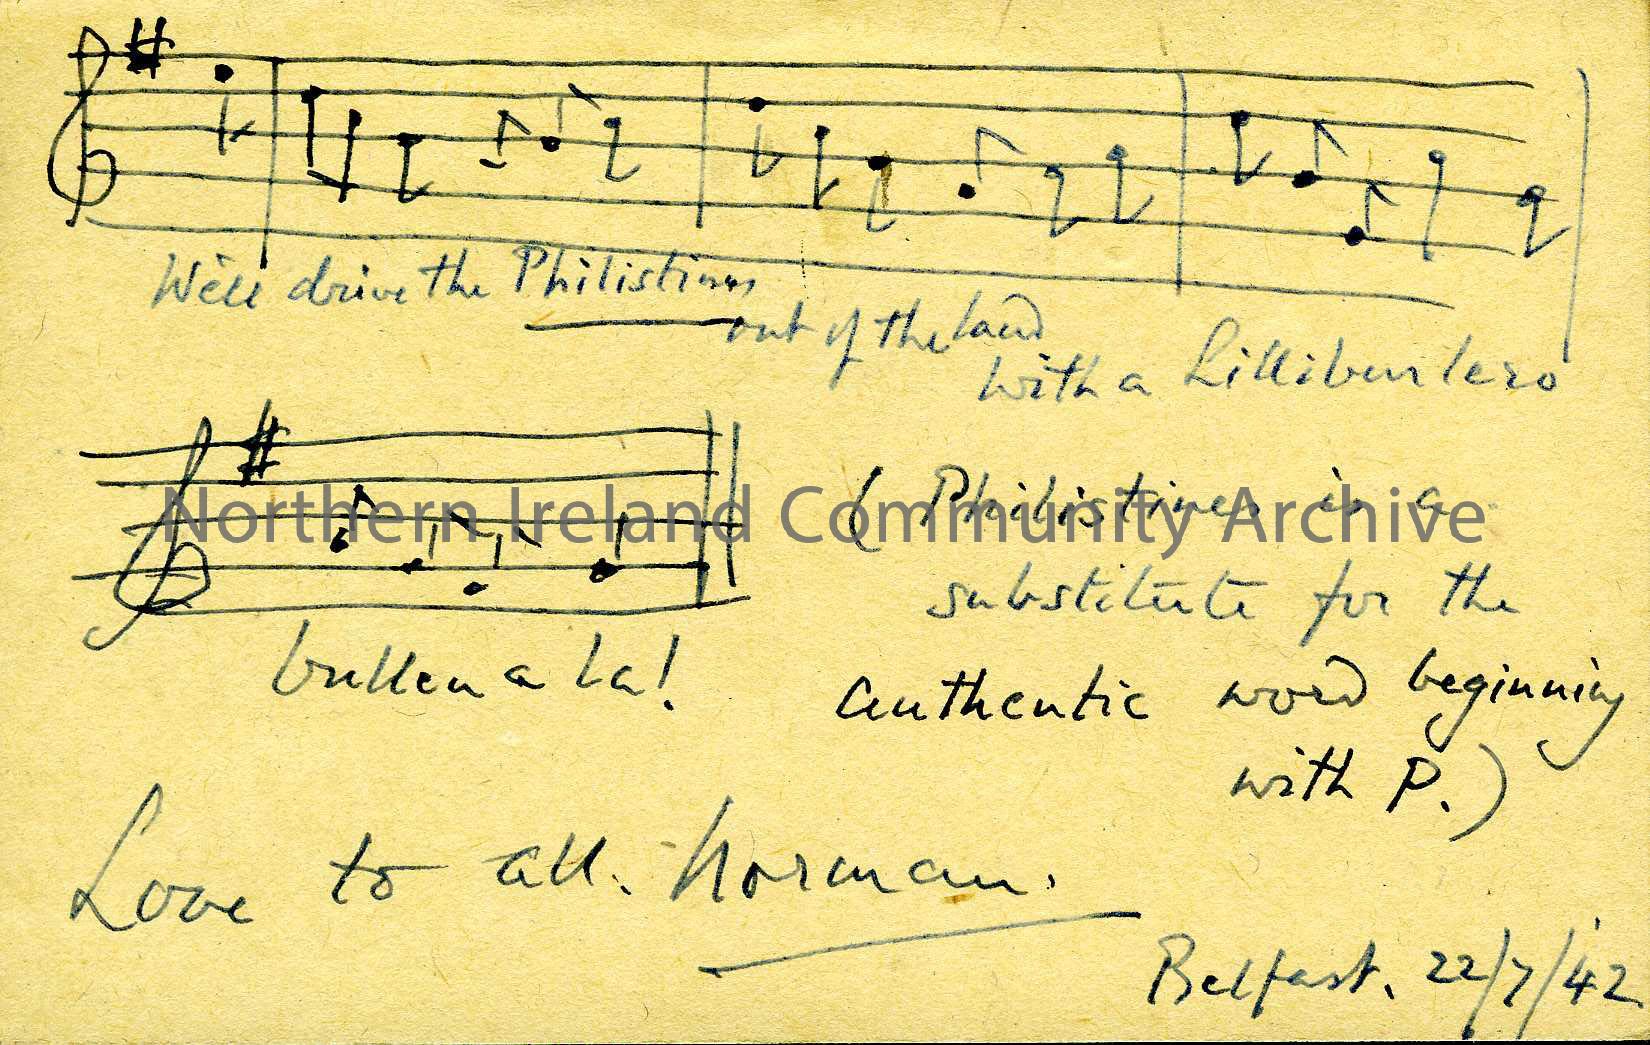 We'll drive the Philistines
out of the land
with a Lilliburlero
bullen a la!
(Philistines is a
substitute for the
authentic word beginning
with P.)
Love to all. Norman.
Belfast. 22/7/42
Northern Ireland Community Archive